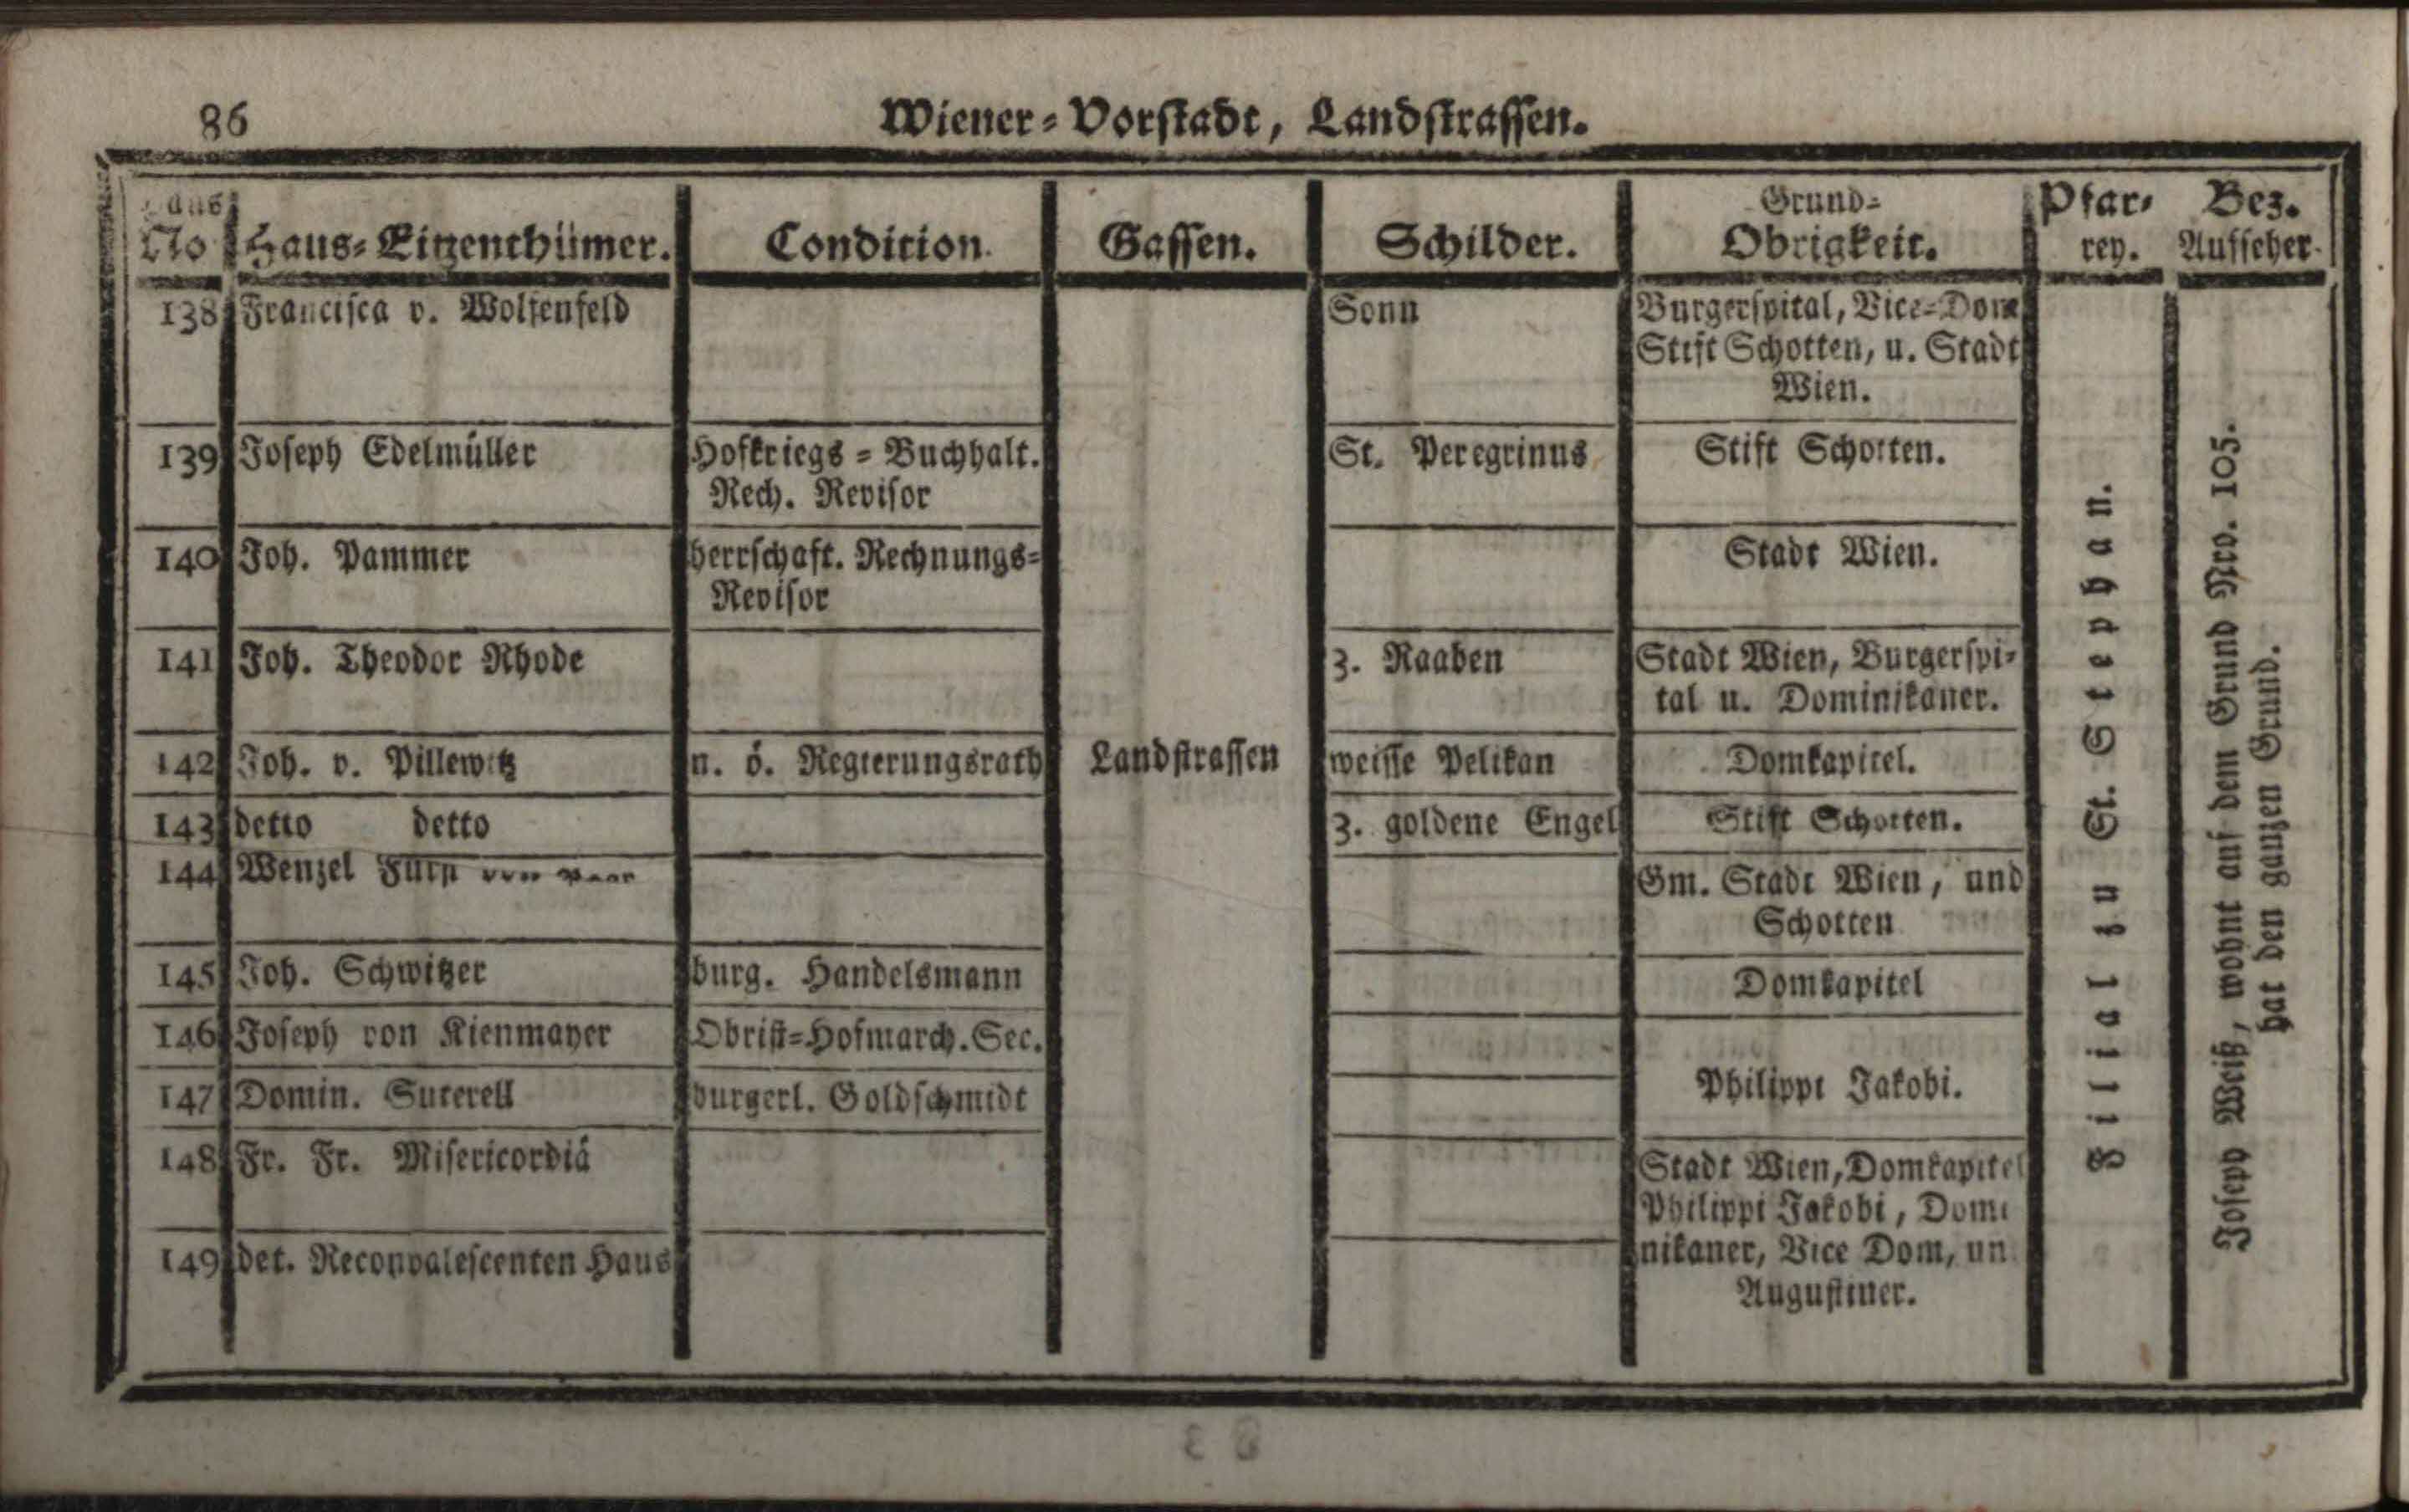 86
Wiener=Vorstadt, Landstrassen.
Haus No Haus=Eigenthümer. Condition. Gassen. Schilder. Grund=Obrigkeit. Pfarrey. Bez. Aufseher.
138 Francisca v. Wolfenfeld Sonn Burgerspital, Vice=Dom
Stift Schotten, u. Stadt
Wien.
139 Joseph Edelmüller Hofkriegs=Buchhalt. St. Peregrinus Stift Schotten.
Rech. Revisor
140 Joh. Pammer herrschaft. Rechnungs= Stadt Wien.
Revisor
141 Joh. Theodor Rhode 3. Raaben Stadt Wien, Burgerspi=
tal u. Dominikaner.
142 Joh. v. Pillewitz n. ö. Regierungsrath Landstrassen weisse Pelikan Domkapitel.
143 detto detto 3. goldene Engel Stift Schotten.
144 Wenzel Fürst von Paar Gm. Stadt Wien, und
Schotten
145 Joh. Schwitzer burg. Handelsmann Domkapitel
146 Joseph von Kienmayer Obrist=Hofmarch. Sec.
147 Domin. Suterell burgerl. Goldschmidt Philippi Jakobi.
148 Fr. Fr. Misericordiä Stadt Wien, Domkapitel
Philippi Jakobi, Domi
149 det. Reconvalescenten Haus nikaner, Vice Dom, un
Augustiner.
Filial zu St. Stephan.
Joseph Weiß, wohnt auf dem Grund Nro. 105.
hat den ganzen Grund.